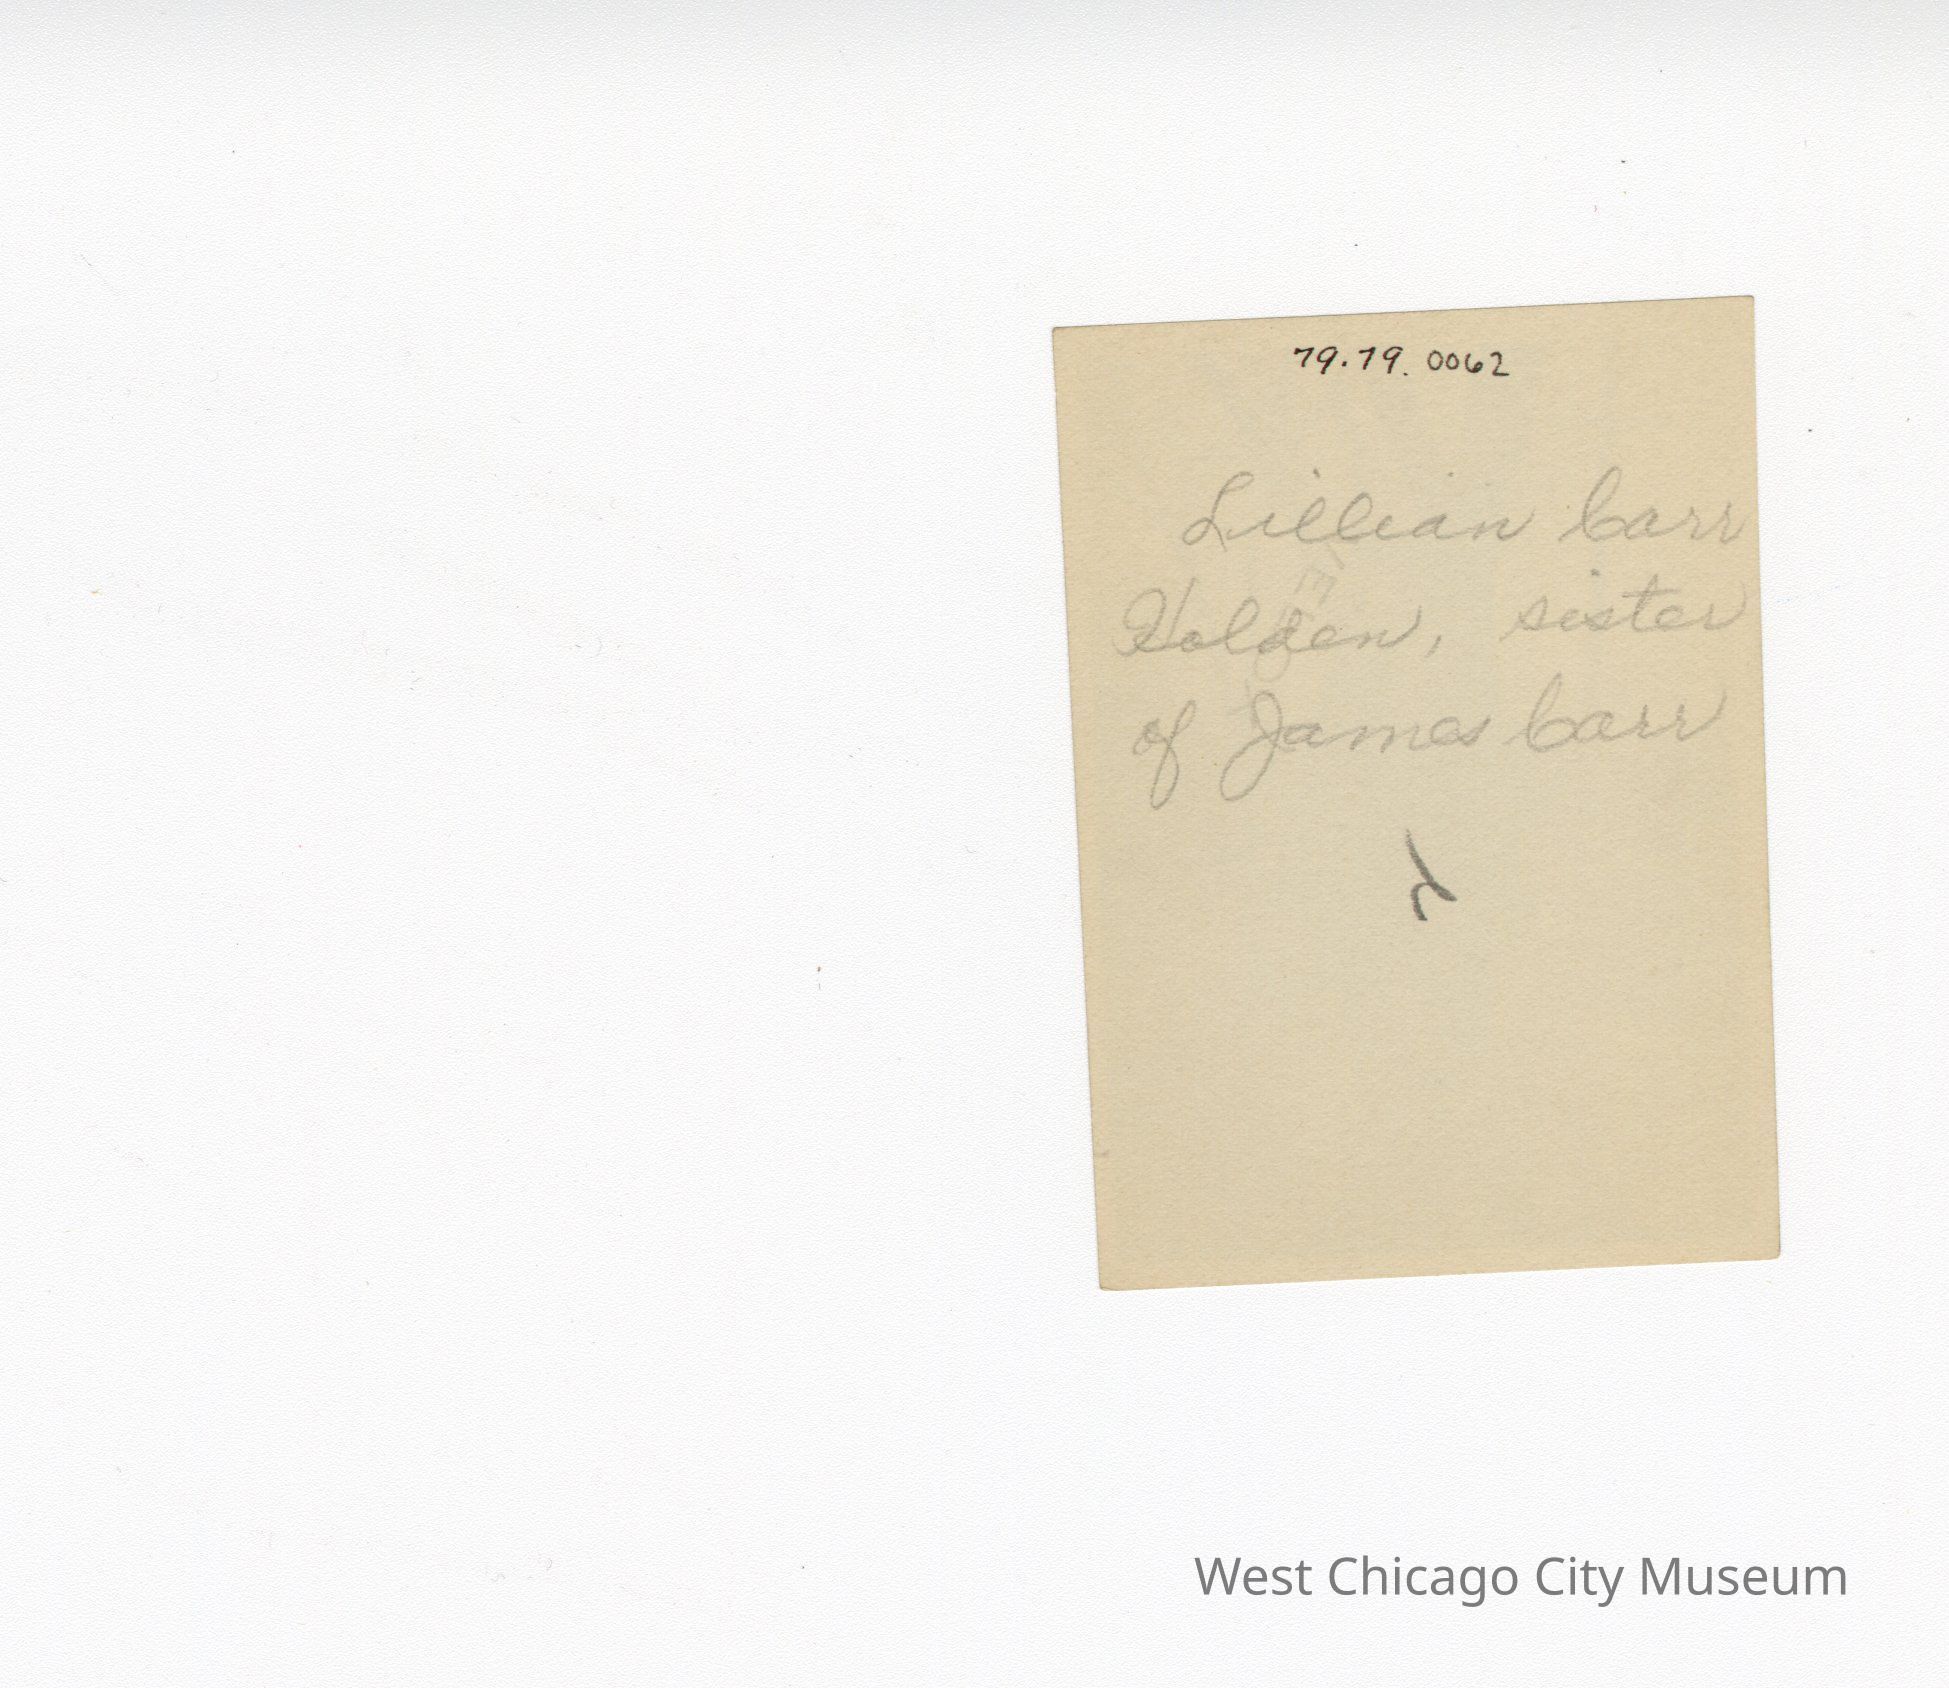 79.79.0062
Lillian Carr
Holden, sister
of James Carr
West Chicago City Museum